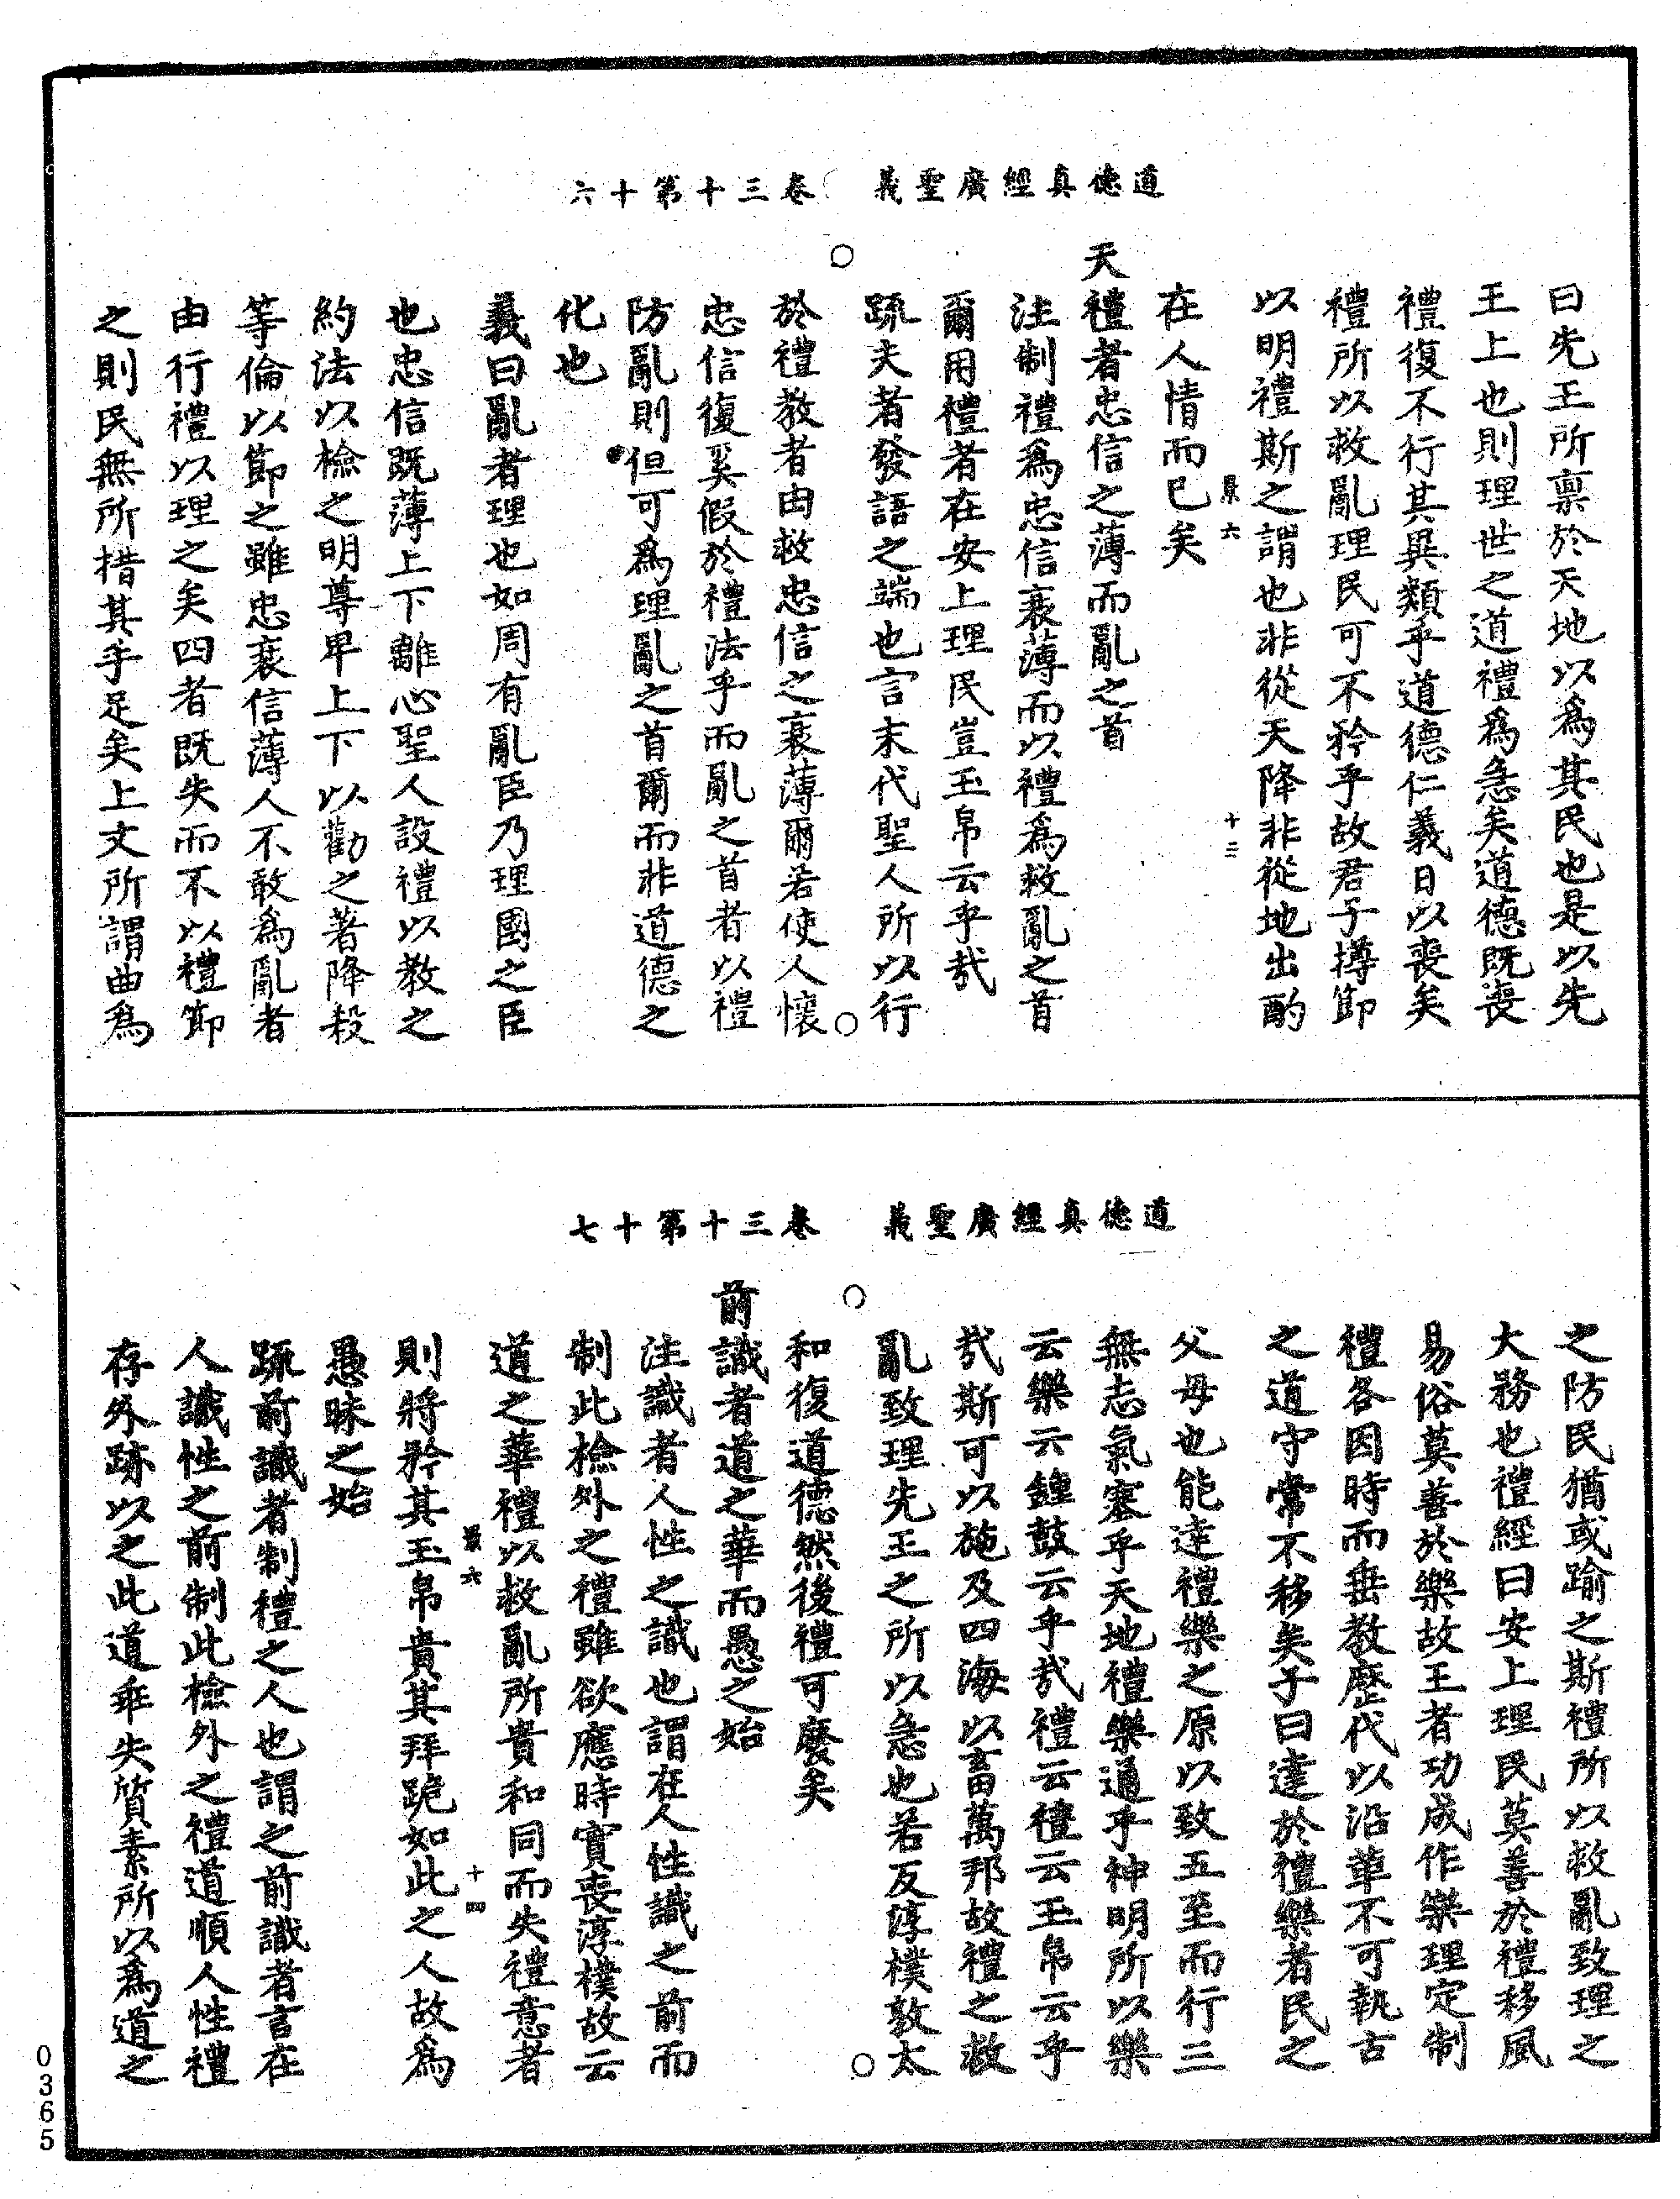 道德真經廣聖義　卷三十第十六
曰先王所禀於天地以為其民也是以先
王上也則理世之道禮為急矣道德既喪
禮復不行其異類乎道德仁義日以喪矣
禮所以救亂理民可不矜乎故君子撙節
以明禮斯之謂也非從天降非從地出酌
景六　十三
在人情而已矣
天禮者忠信之薄而亂之首
注制禮為忠信衰薄而以禮為救亂之首
爾用禮者在安上理民豈玉帛云乎哉
疏夫者發語之端也言末代聖人所以行
於禮教者由救忠信之衰薄爾若使人懷
忠信復奚假於禮法乎而亂之首者以禮
防亂則但可為理亂之首爾而非道德之
化也
義曰亂者理也如周有亂臣乃理國之臣
也忠信既薄上下離心聖人設禮以教之
約法以檢之明尊卑上下以勸之著降殺
等倫以節之雖忠衰信薄人不敢為亂者
由行禮以理之矣四者既失而不以禮節
之則民無所措其手足矣上文所謂曲為
道德真經廣聖義　卷三十第十七
之防民猶或踰之斯禮所以救亂致理之
大務也禮經曰安上理民莫善於禮移風
易俗莫善於樂故王者功成作樂理定制
禮各因時而垂教歷代以沿革不可執古
之道守常不移矣子曰達於禮樂者民之
父母也能達禮樂之原以致五至而行三
無志氣塞乎天地禮樂通乎神明所以樂
云樂云鐘鼓云乎哉禮云禮云玉帛云乎
哉斯可以施及四海以畜萬邦故禮之救
亂致理先王之所以急也若反淳樸敦太
和復道德然後禮可廢矣
前識者道之華而愚之始
注識者人性之識也謂在人性識之前而
制此檢外之禮雖欲應時實喪淳樸故云
道之華禮以救亂所貴和同而失禮意者
景六　十四
則將矜其玉帛貴其拜跪如此之人故為
愚昧之始
疏前識者制禮之人也謂之前識者言在
人識性之前制此檢外之禮道順人性禮
存外跡以之此道乖失質素所以為道之
0365